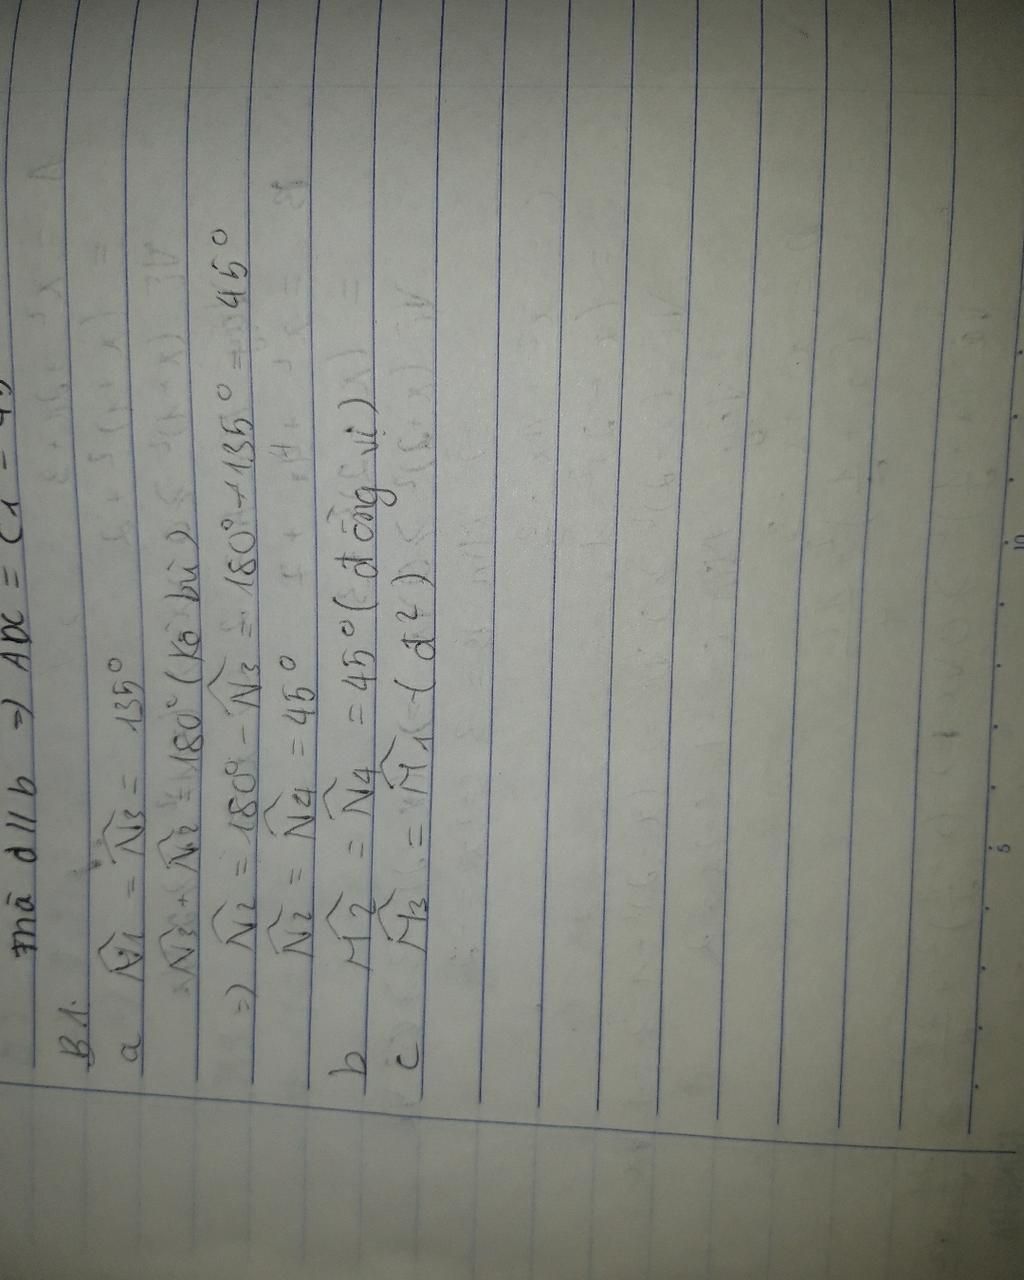 mà d // b => ADC = C1 = 45
B1.
a N̂1 = N̂3 = 135°
N̂3 + N̂2 = 180° (kề bù)
=) N̂2 = 180° - N̂3 = 180° - 135° = 45°
N̂2 = N̂4 = 45°
b M̂2 = N̂4 = 45° (đồng vị)
c M̂3 = M̂1 (đ²)